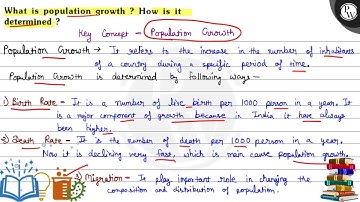 What is population growth ? How is it
determined ?
Key Concept - Population Growth
Population Growth → It refers to the increase in the number of inhabitants
of a country during a specific period of time.
Population Growth is determined by following ways -
1) Birth Rate - It is a number of live birth per 1000 person in a year. It
is a major component of growth because in India it have always
been higher.
2) Death Rate - It is the number of death per 1000 person in a year.
Now it is declining very fast, which is main cause population growth.
3) Migration - It play important role in changing the
composition and distribution of population.